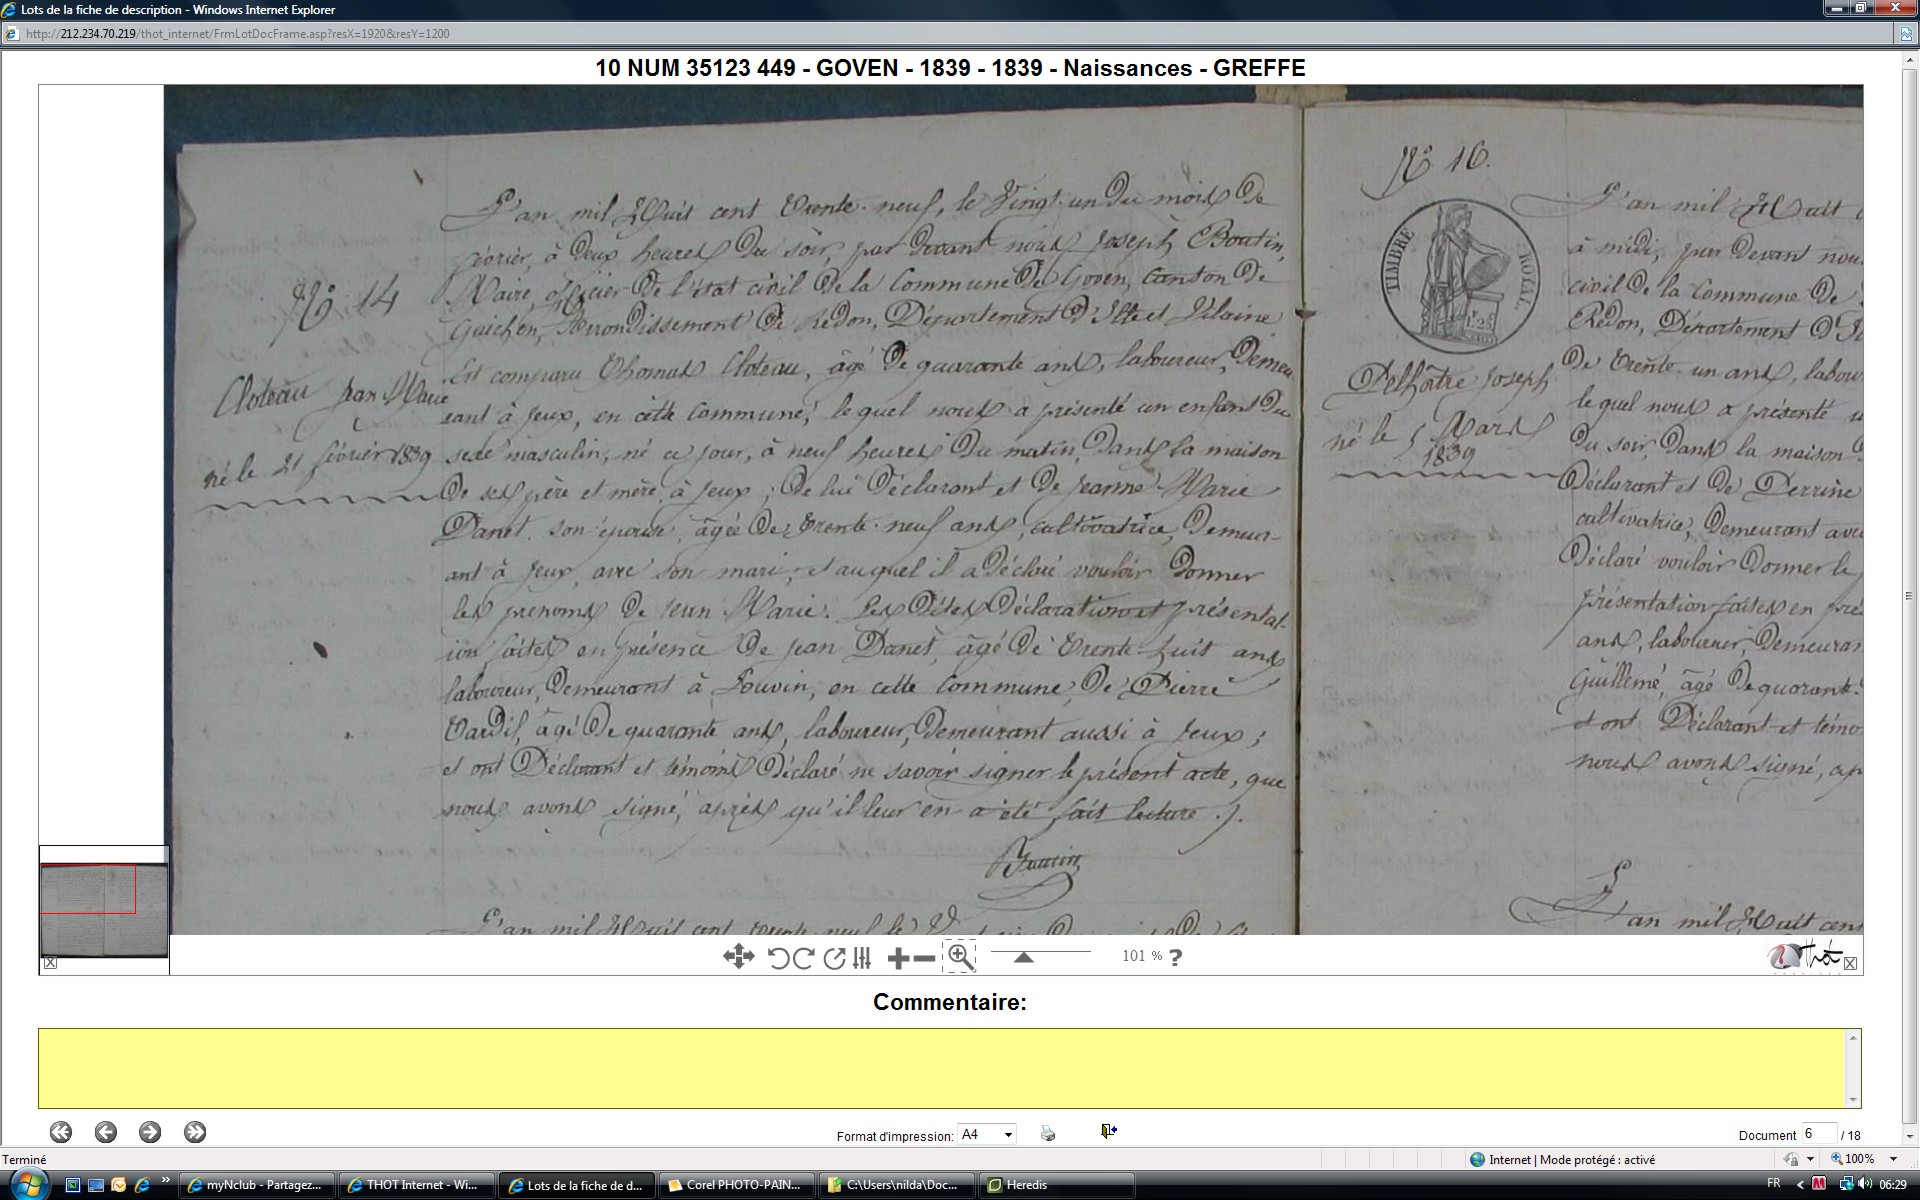 Lots de la fiche de description - Windows Internet Explorer
http://212.234.70.219/thot_internet/FrmLotDocFrame.asp?resX=1920&resY=1200
10 NUM 35123 449 - GOVEN - 1839 - 1839 - Naissances - GREFFE
L'an mil Huit cent Trente-neuf, le Vingt-un du mois de
février, à deux heures du soir, par devant nous Joseph Boutin,
Maire, officier de l'état civil de la Commune de Goven, canton de
Guichen, Arrondissement de Redon, Département d'Ille et Vilaine
Est comparu Thomas Cloteau, âgé de quarante ans, laboureur, demeu
rant à Jeux, en cette commune, lequel nous a présenté un enfant du
sexe masculin, né ce jour, à neuf heures du matin, dans la maison
de ses père et mère, à Jeux, de lui déclarant et de Jeanne-Marie
Danet, son épouse, âgée de trente-neuf ans, cultivatrice, demeur-
ant à Jeux, avec son mari, et auquel il a déclaré vouloir donner
les prenoms de Jean Marie. Les dites déclaration et présentat-
ion faites en présence de Jean Danet, âgé de Trente-huit ans
laboureur, demeurant à Louvin, en cette commune, de Pierre
Tardif, âgé de quarante ans, laboureur, demeurant aussi à Jeux;
et ont déclarant et témoins déclaré ne savoir signer le présent acte, que
nous avons signé, après qu'il leur en a été fait lecture ./.
Boutin
L'an mil Huit cent trente neuf le
N° 14
Cloteau Jean Marie
né le 21 février 1839
N° 16.
TIMBRE ROYAL
Delhôtre Joseph
né le 5 Mars
1839
L'an mil Huit
à midi, par devant nou
civil de la Commune de
Redon, Département d'I
de Trente-un ans, labou
lequel nous a présenté u
du soir, dans la maison
déclarant et de Perrine
cultivatrice, demeurant ave
déclaré vouloir donner le
présentation faites en pré
ans, laboureur, demeuran
Guillemé, âgé de quarante
et ont déclarant et témo
nous avons signé, ap
L'an mil Huit cent
101 % ?
Thot
Commentaire:
Format d'impression: A4
Document 6 / 18
Terminé
Internet | Mode protégé : activé
100%
myNclub - Partagez...
THOT Internet - Wi...
Lots de la fiche de d...
Corel PHOTO-PAIN...
C:\Users\nilda\Doc...
Heredis
FR
06:29